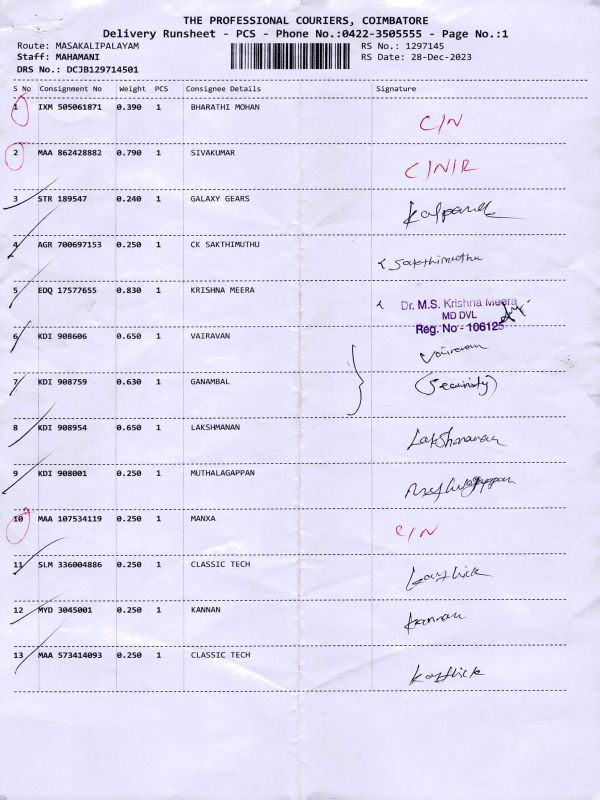 THE PROFESSIONAL COURIERS, COIMBATORE
Delivery Runsheet - PCS - Phone No.:0422-3505555 - Page No.:1
Route: MASAKALIPALAYAM RS No.: 1297145
Staff: MAHAMANI RS Date: 28-Dec-2023
DRS No.: DCJB129714501
S No Consignment No Weight PCS Consignee Details Signature
1 IXM 505061871 0.390 1 BHARATHI MOHAN C/N
2 MAA 862428882 0.790 1 SIVAKUMAR C/N/R
3 STR 189547 0.240 1 GALAXY GEARS
4 AGR 700697153 0.250 1 CK SAKTHIMUTHU Sakthimuthu
5 EDQ 17577655 0.830 1 KRISHNA MEERA Dr. M.S. Krishna Meera
MD DVL
Reg. No - 106125
6 KDI 908606 0.650 1 VAIRAVAN Vairavan
7 KDI 908759 0.630 1 GANAMBAL (Security)
8 KDI 908954 0.650 1 LAKSHMANAN Lakshmanan
9 KDI 908001 0.250 1 MUTHALAGAPPAN
10 MAA 107534119 0.250 1 MANXA C/N
11 SLM 336004886 0.250 1 CLASSIC TECH
12 MYD 3045001 0.250 1 KANNAN Kannan
13 MAA 573414093 0.250 1 CLASSIC TECH